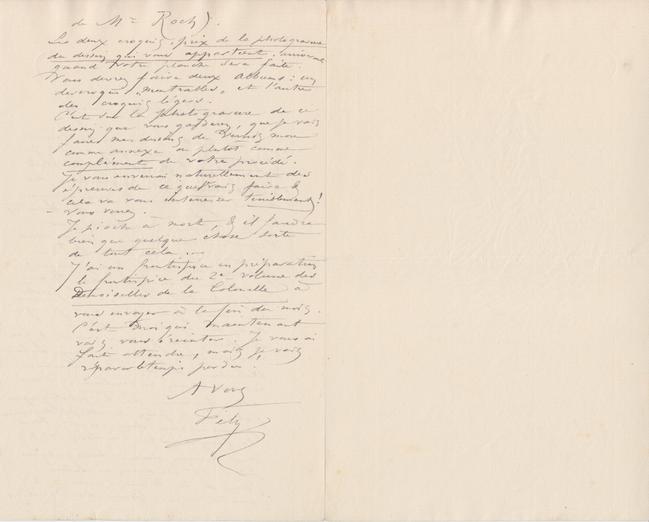 de Mme Roch).
Les deux croquis, prix de la photogravure
du dessin qui vous appartient,
quand votre planche sera faite.
Vous devrez faire deux Albums : un
des croquis, et l'autre
des croquis légers.
C'est sur la photogravure de ce
dessin que vous garderez, que je vais
faire mes dessins de Vernis mou
comme annexe ou plutôt comme
complément de votre procédé.
Je vous enverrai naturellement des
épreuves de ce que je vais faire &
cela va vous intéresser terriblement!
– vous verrez.
Je pioche à mort, & il faudra
bien que quelque chose sorte
de tout cela....
J'ai un frontispice en préparation
le frontispice du 2e volume des
Demoiselles de la Colonelle à
vous envoyer à la fin du mois.
C'est moi qui maintenant
vais vous éreinter. Je vous ai
fait attendre, mais je vais
réparer le temps perdu.
A vous
Fély